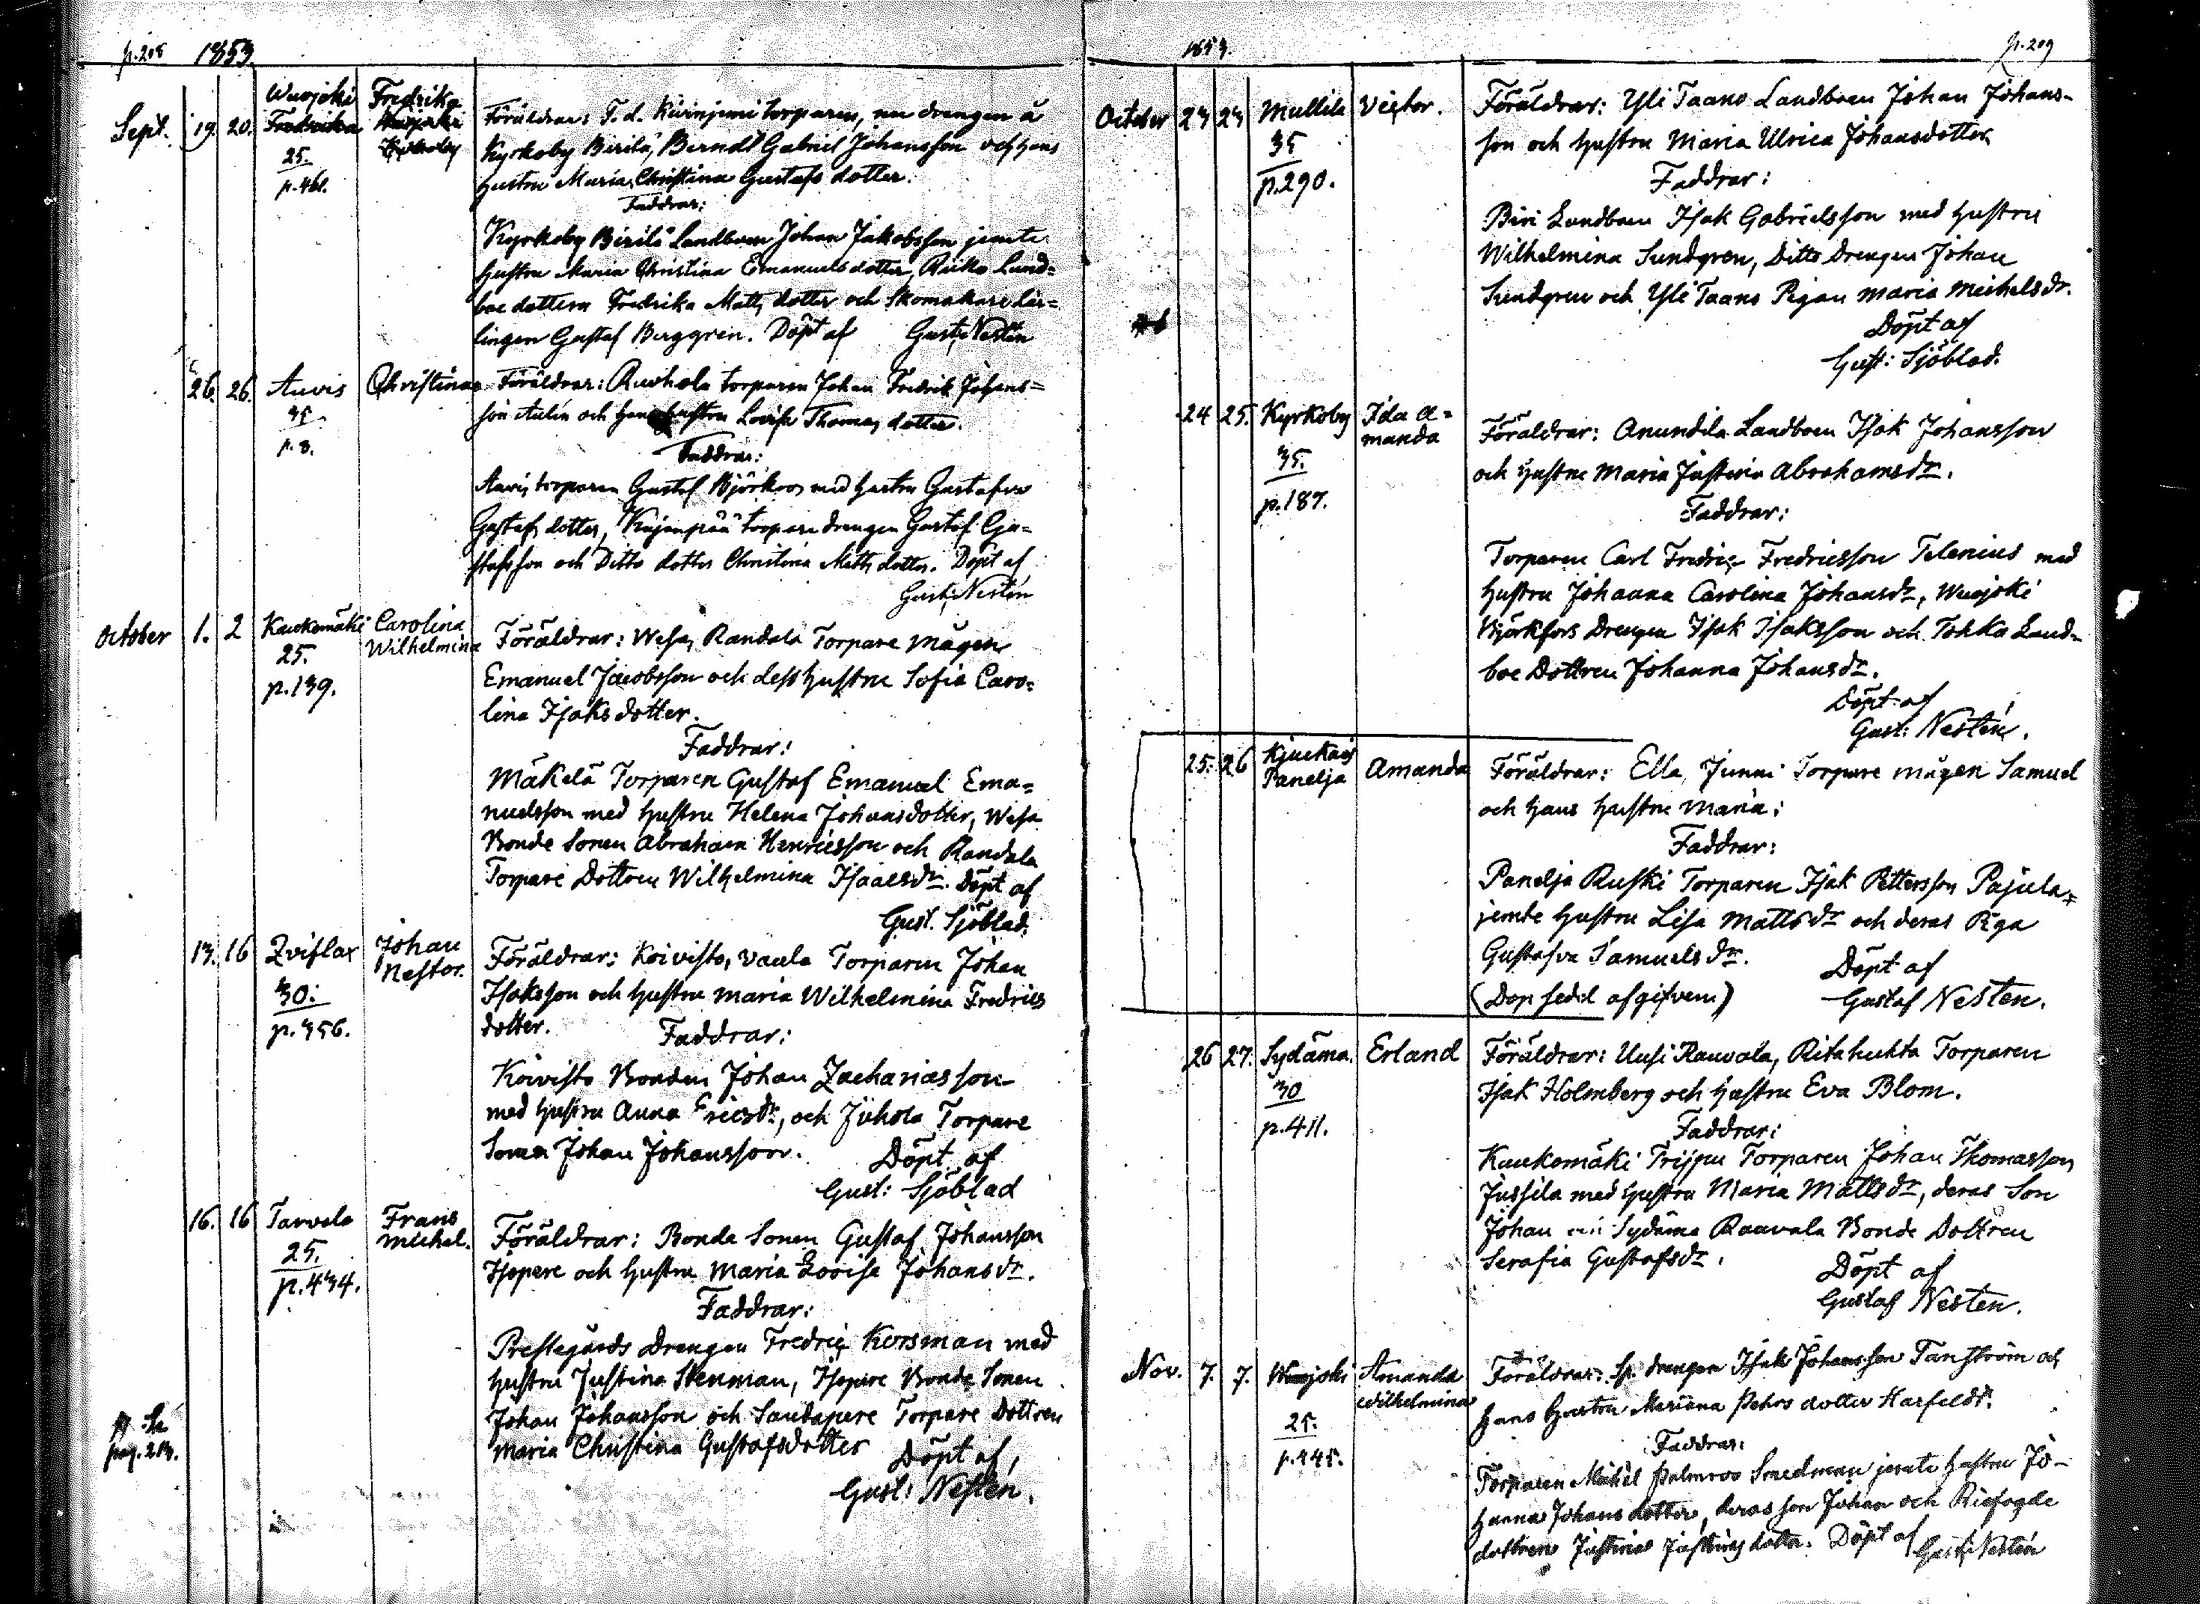 p. 208 1853.
Sept. 19. 20. Wuojoki Fredrika
25.
p. 461.
Föräldrar: F. d. torparen, nu drengen å
Kyrkoby Birilä, Berndt Gabriel Johansson och hans
hustru Maria Christina Gustafs dotter.
Faddrar:
Kyrkoby Birilä Landboen Johan Jakobsson jemte
hustru Maria Christina Emanuels dotter, Land=
boe dottern Fredrika Matts dotter och Skomakare lär=
lingen Gustaf Berggren. Döpt af Gust. Nestén
26. 26. Auvis Christina
35
p. 8.
Föräldrar: Ruohola torparen Johan Fredrik Johans=
son Aulin och hans hustru Lovisa Thomas dotter.
Faddrar:
Auvis torparen Gustaf Björkroos med hustru Gustafva
Gustafs dotter, torpare drengen Gustaf Gu=
stafsson och Ditto dotter Christina Matts dotter. Döpt af
Gust. Nestén
October 1. 2 Kaukomäki Carolina
Wilhelmina
25.
p. 139.
Föräldrar: Wesa, Randala Torpare mågen
Emanuel Jacobsson och dess hustru Sofia Caro=
lina Isaksdotter.
Faddrar:
Mäkelä Torparen Gustaf Emanuel Ema=
nuelsson med hustru Helena Johansdotter, Wesa
Bonde Sonen Abraham Henricsson och Randala
Torpare Dottren Wilhelmina Isaacsdr. Döpt af
Gust. Sjöblad.
13. 16 Zviflax Johan
Nestor.
30.
p. 356.
Föräldrar: Koivisto, Vaula Torparen Johan
Isaksson och hustru Maria Wilhelmina Fredrics
dotter.
Faddrar:
Koivisto Bonden Johan Zachariasson
med hustru Anna Ericsdr, och Juhola Torpare
Sonen Johan Johansson. Döpt af
Gust: Sjöblad
16. 16 Tarvola Frans
Michel.
25.
p. 434.
Föräldrar: Bonde Sonen Gustaf Johansson
Isopere och hustru Maria Lovisa Johansdr.
Faddrar:
Prestegårds Drengen Fredric Korsman med
hustru Justina Stenman, Isopere Bonde Sonen
Johan Johansson och Santapere Torpare Dottren
Maria Christina Gustafsdotter Döpt af,
Gust: Nestén.
pag. 213.
1853. p. 209
October 23 23 Mullila Victor.
35
p. 290.
Föräldrar: Yli Taano Landboen Johan Johans-
son och hustru Maria Ulrica Johansdotter
Faddrar:
Biri Landboen Isak Gabrielsson med hustru
Wilhelmina Sundgren, Ditto Drengen Johan
Sundgren och Yli Taano Pigan Maria Michelsdr.
Döpt af
Gust: Sjöblad.
24 25. Kyrkoby Ida A=
manda
35.
p. 187.
Föräldrar: Anundila Landboen Isak Johansson
och hustru Maria Justina Abrahamsdr.
Faddrar:
Torparen Carl Fredric Fredricsson Telenius med
hustru Johanna Carolina Johansdr, Wuojoki
Björkfors Drengen Isak Isaksson och Tokka Land=
boe Dottren Johanna Johansdr.
Döpt af
Gust: Nestén.
25. 26 Kjuckais
Panelja Amanda
Föräldrar: Ella, Junni Torpare mågen Samuel
och hans hustru Maria:
Faddrar:
Panelja Ruski Torparen Isak Pettersson Pajula
jemte hustru Lisa Mattsdr och deras Piga
Gustafva Samuelsdr. Döpt af
(Dop sedel afgifven) Gustaf Nesten.
26 27. Sydäma. Erland
30
p. 411.
Föräldrar: Uusi Rauvala, Ritahuhta Torparen
Isak Holmberg och hustru Eva Blom.
Faddrar:
Kaukomäki Trijpu Torparen Johan Thomasson
Jussila med hustru Maria Mattsdr, deras Son
Johan och Sydäma Raavala Bonde Dottren
Serafia Gustafsdr.
Döpt af
Gustaf Nesten.
Nov. 7. 7. Wuojoki Amanda
Wilhelmina
25.
p. 445.
Föräldrar: Sp. drengen Isak Johansson Tanström och
hans hustru Mariana Pehrs dotter Harfeldt.
Faddrar:
Torparen Mikel Palmroos Smedman jemte hustru Jo-
hanna Johans dotter, deras son Johan och Riefogde
dottren Justina Justins dotter. Döpt af Gust. Nestén